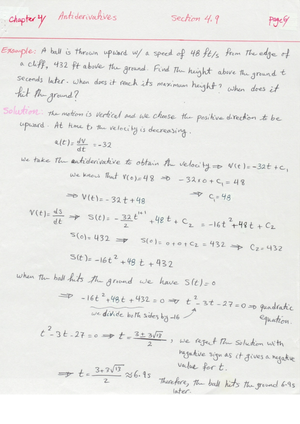 Chapter 4 Antiderivatives Section 4.9 page 4
Example: A ball is thrown upward w/ a speed of 48 ft/s from the edge of
a cliff, 432 ft above the ground. Find the height above the ground t
seconds later. when does it reach its maximum height? when does it
hit the ground?
Solution: The motion is vertical and we choose the positive direction to be
upward. At time t the velocity is decreasing.
a(t) = dv/dt = -32
we take the antiderivative to obtain the velocity ⇒ V(t) = -32t + C₁
we know that V(0) = 48 ⇒ -32×0 + C₁ = 48
⇒ V(t) = -32t + 48 ⇒ C₁ = 48
V(t) = ds/dt ⇒ S(t) = -32 t¹⁺¹/2 + 48t + C₂ = -16t² + 48t + C₂
S(0) = 432 ⇒ S(0) = 0 + 0 + C₂ = 432 ⇒ C₂ = 432
S(t) = -16t² + 48t + 432
when the ball hits the ground we have S(t) = 0
⇒ -16t² + 48t + 432 = 0 ⇒ t² - 3t - 27 = 0 ⇒ quadratic
we divide both sides by -16 equation.
t² - 3t - 27 = 0 ⇒ t = 3 ± 3√13/2 , we reject the solution with
negative sign as it gives a negative
value for t.
⇒ t = 3 + 3√13/2 ≈ 6.9 s Therefore, the ball hits the ground 6.9 s
later.